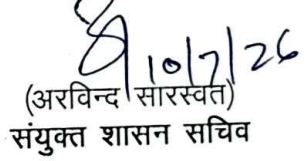 10/7/26
(अरविन्द सारस्वत)
संयुक्त शासन सचिव